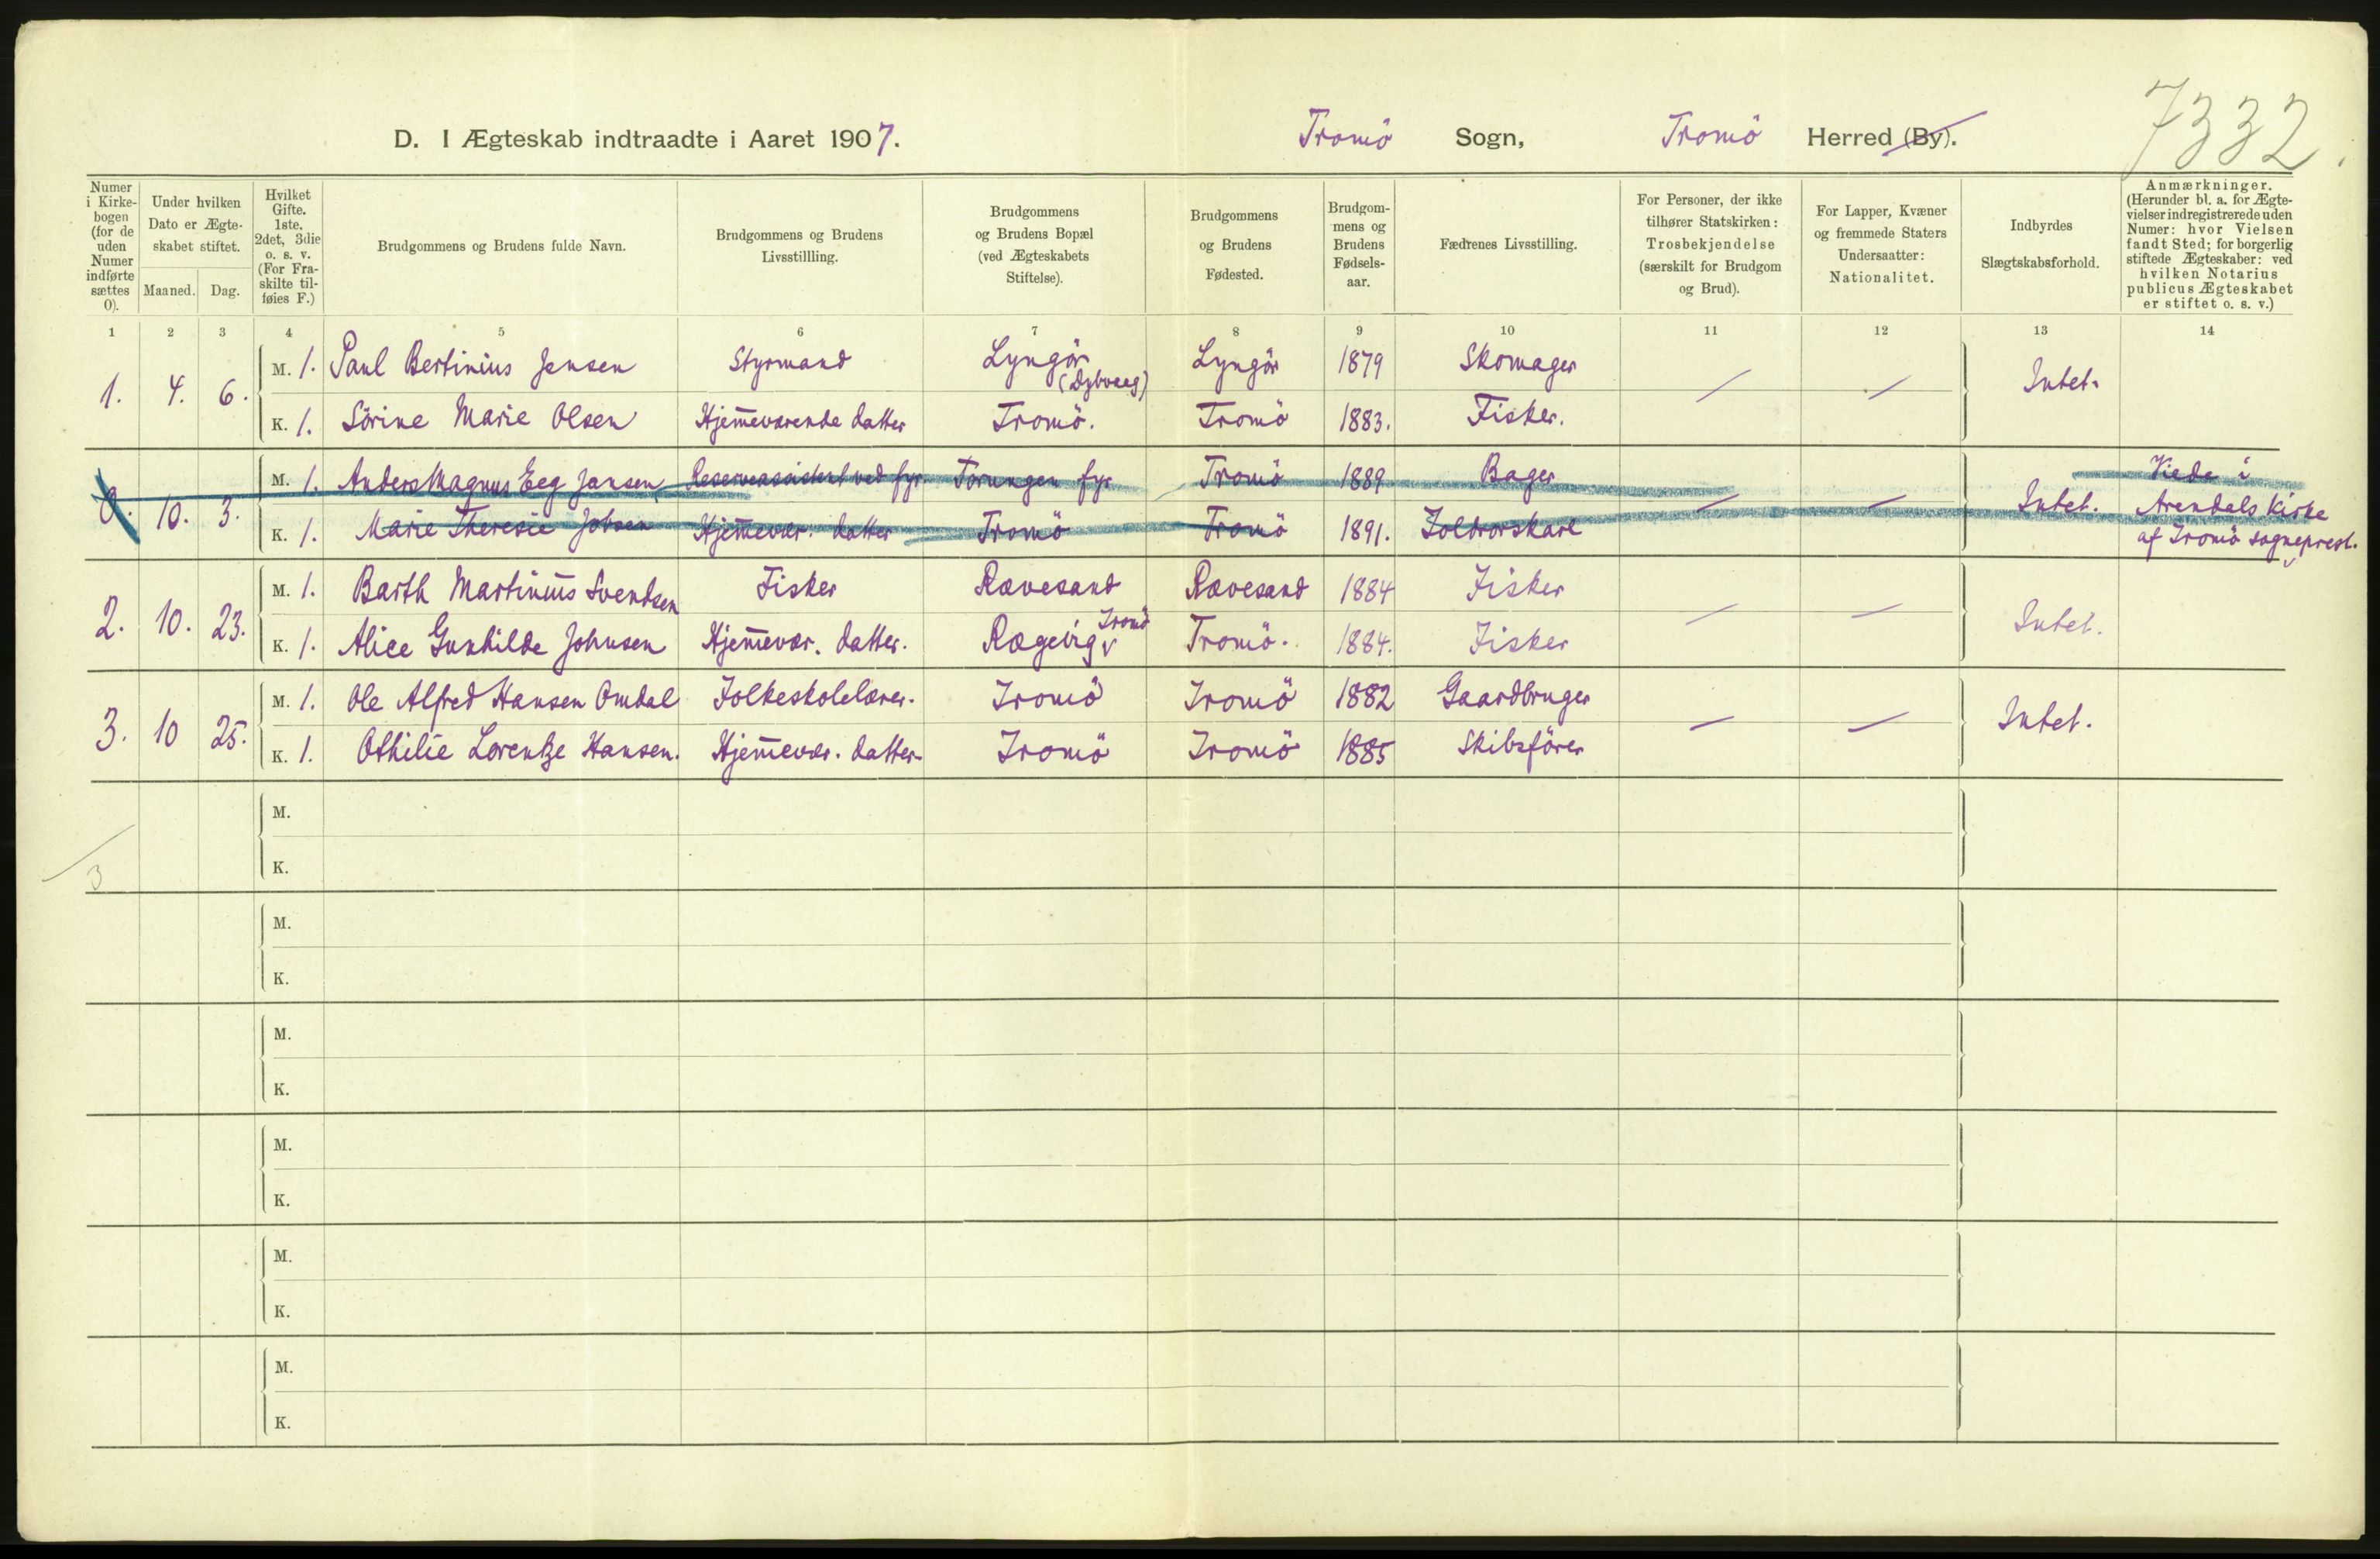 7332.
D. I Ægteskab indtraadte i Aaret 1907. Tromö Sogn, Tromö Herred (By).
Numer i Kirke-bogen (for de uden Numer indførte sættes 0).
Under hvilken Dato er Ægte-skabet stiftet.
Maaned. Dag.
Hvilket Gifte. 1ste. 2det, 3die o. s. v. (For Fra-skilte til-føies F.)
Brudgommens og Brudens fulde Navn.
Brudgommens og Brudens Livsstillling.
Brudgommens og Brudens Bopæl (ved Ægteskabets Stiftelse).
Brudgommens og Brudens Fødested.
Brudgom-mens og Brudens Fødsels-aar.
Fædrenes Livsstilling.
For Personer, der ikke tilhører Statskirken: Trosbekjendelse (særskilt for Brudgom og Brud).
For Lapper, Kvæner og fremmede Staters Undersaatter: Nationalitet.
Indbyrdes Slægtskabsforhold.
Anmærkninger. (Herunder bl. a. for Ægte-vielser indregistrerede uden Numer: hvor Vielsen fandt Sted; for borgerlig stiftede Ægteskaber: ved hvilken Notarius publicus Ægteskabet er stiftet o. s. v.)
1 2 3 4 5 6 7 8 9 10 11 12 13 14
1. 4. 6. M. 1. Paul Bertinius Jensen Styrmand Lyngör (Dybvaag) Lyngör 1879 Skomager Intet.
K. 1. Sörine Marie Olsen Hjemeværende datter Tromö. Tromö 1883. Fisker.
0. 10. 3. M. 1. Anders Magnus Eeg Jansen Reserveassistent ved fyr. Torungen fyr Tromö 1889 Bager Intet. Viede i
K. 1. Marie Theresie Jobsen Hjemevær. datter Tromö Tromö 1891. Toldrorskarl Arendals Kirke
af Tromö sogneprest.
2. 10. 23. M. 1. Barth Martinius Svendsen Fisker Rævesand Rævesand 1884 Fisker Intet.
K. 1. Alice Gunhilde Johnsen Hjemevær. datter. Rægevig Tromö Tromö. 1884. Fisker
3. 10 25. M. 1. Ole Alfred Hansen Omdal Folkeskolelærer. Tromö Tromö 1882 Gaardbruger Intet.
K. 1. Othilie Lorentze Hansen. Hjemevær. datter. Tromö Tromö 1885 Skibsförer
M.
K.
3
M.
K.
M.
K.
M.
K.
M.
K.
M.
K.